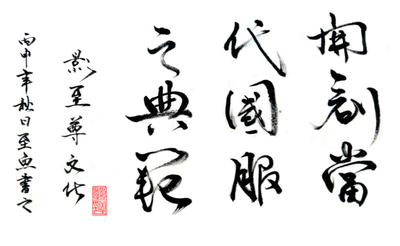 開創當
代國服
之典範
影至尊文化
丙申年秋日至魚書之